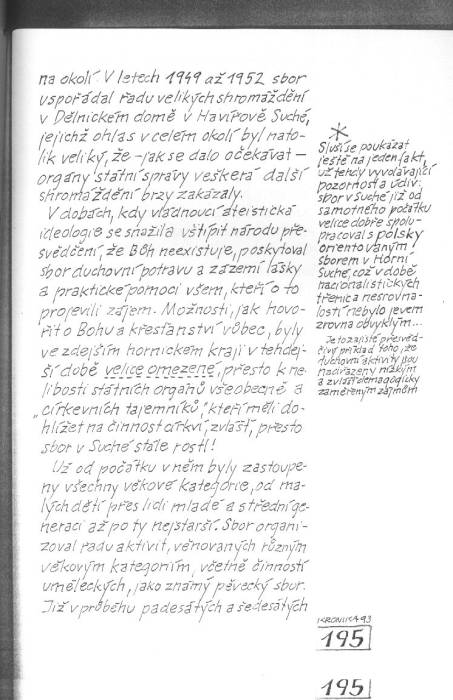 na okolí V letech 1949 až 1952 sbor
uspořádal řadu velikých shromáždění
v Dělnickém domě v Havířově Suché,
jejichž ohlas v celém okolí byl nato-
lik veliký, že – jak se dalo očekávat –
orgány státní správy veškerá další
shromáždění brzy zakázaly.
V dobách, kdy vládnoucí ateistická
ideologie se snažila vštípit národu pře-
svědčení, že Bůh neexistuje, poskytoval
sbor duchovní potravu a zázemí lásky
a praktické pomoci všem, kteří o to
projevili zájem. Možnosti, jak hovo-
řit o Bohu a křesťanství vůbec, byly
ve zdejším hornickém kraji v tehdej-
ší době velice omezené, přesto k ne-
libosti státních orgánů všeobecně a
„církevních tajemníků," kteří měli do-
hlížet na činnost církví, zvlášť, přesto
sbor v Suché stále rostl!
Už od počátku v něm byly zastoupe-
ny všechny věkové kategorie, od ma-
lých dětí přes lidi mladé a střední ge-
neraci až po ty nejstarší. Sbor organi-
zoval řadu aktivit, věnovaných různým
věkovým kategoriím, včetně činností
uměleckých, jako známý pěvecký sbor.
Již v průběhu padesátých a šedesátých
*
Sluší se poukázat
ještě na jeden fakt,
už tehdy vyvolávající
pozornost a údiv:
sbor v Suché již od
samotného počátku
velice dobře spolu-
pracoval s polsky
orientovaným
sborem v Horní
Suché, což v době
nacionalistických
třenic a nesrovna-
lostí nebylo jevem
zrovna obvyklým...
Je to zajisté přesvěd-
čivý příklad toho, že
duchovní aktivity jsou
nadřazeny nízkým
a zvlášť demagogicky
zaměřeným zájmům
KRONIKA 93
195
195